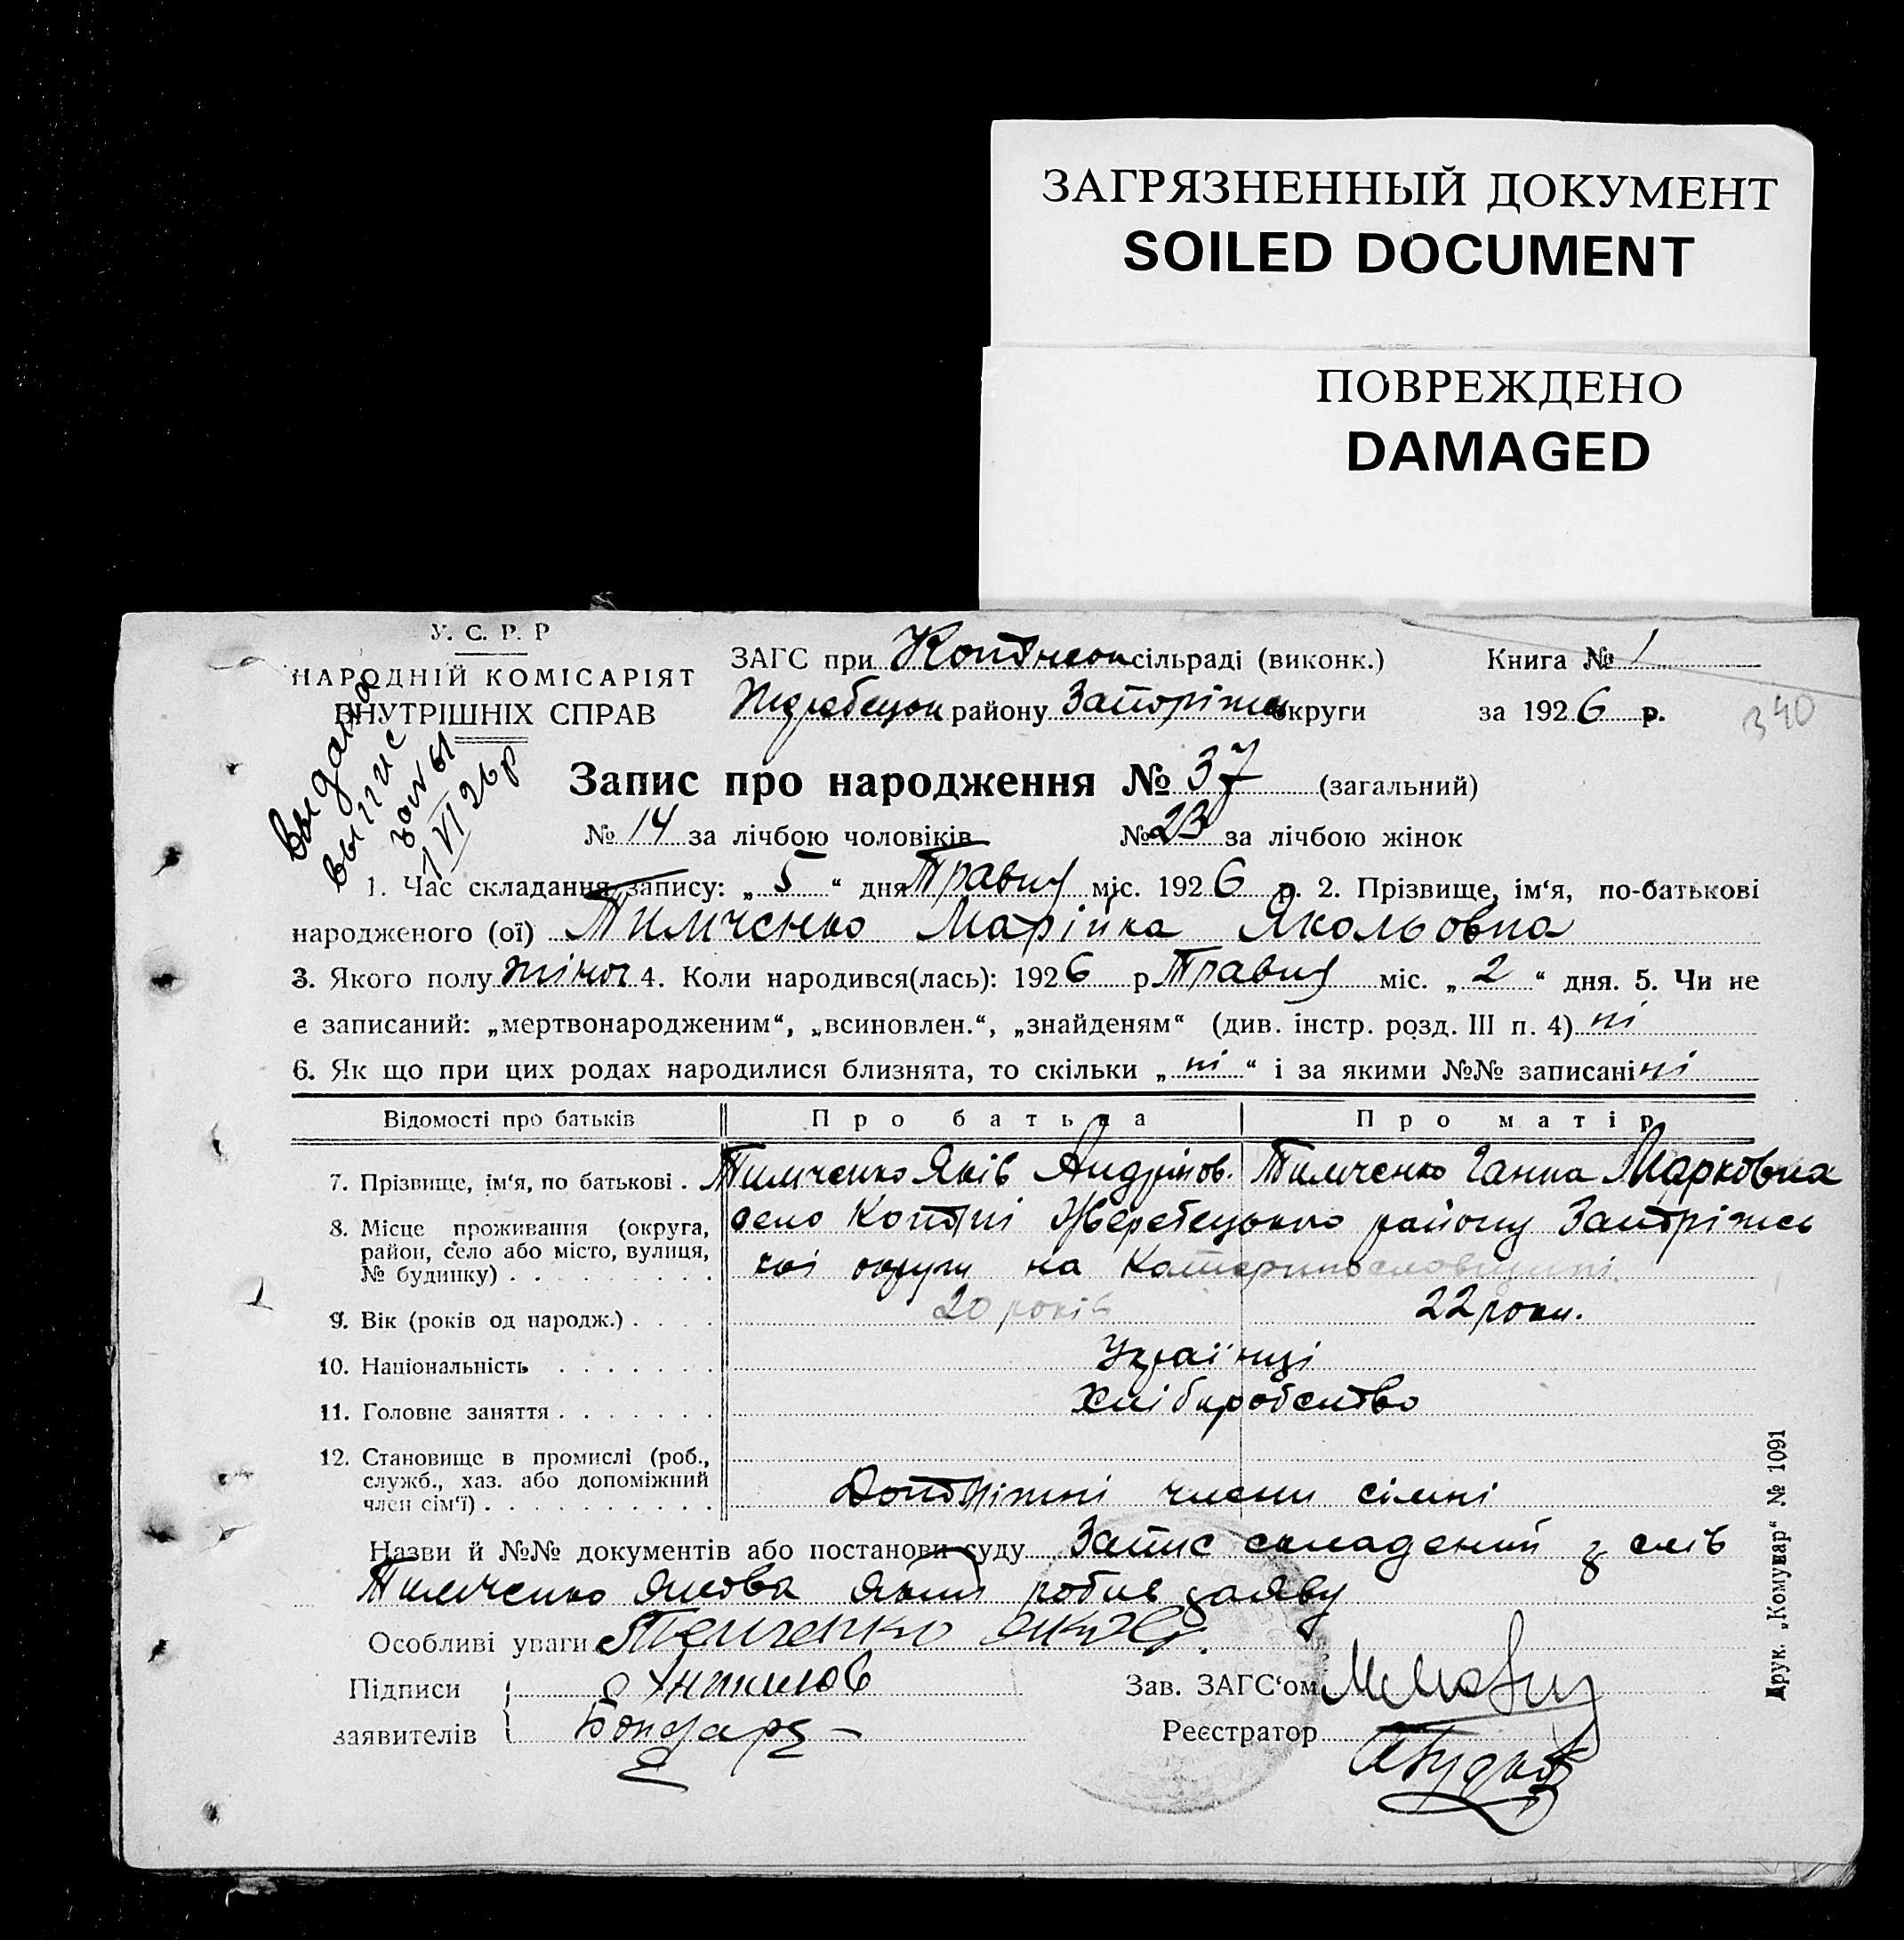 ЗАГРЯЗНЕННЫЙ ДОКУМЕНТ
SOILED DOCUMENT
ПОВРЕЖДЕНО
DAMAGED
У. С. Р. Р
НАРОДНІЙ КОМІСАРІЯТ
ВНУТРІШНІХ СПРАВ
ЗАГС при сільраді (виконк.) Книга № 1
району Запоріжсь округи за 1926 р.
340
выдана
выпис
1 VI 26 р
Запис про народження № 37 (загальний)
№ 14 за лічбою чоловіків № 23 за лічбою жінок
1. Час складання запису: „ 5 “ дня Травня міс. 1926 р. 2. Прізвище, ім‘я, по-батькові
народженого (ої) Тимченко Марійка Якольовна
3. Якого полу жіноч 4. Коли народився(лась): 1926 р Травня міс. „ 2 “ дня. 5. Чи не
є записаний: „мертвонародженим“, „всиновлен.“, „знайденям“ (див. інстр. розд. III п. 4) ні
6. Як що при цих родах народилися близнята, то скільки „ ні “ і за якими №№ записані ні
Відомості про батьків Про батька Про матір
7. Прізвище, ім‘я, по батькові . Тимченко Яків Андріїов. Тимченко Ганна Марковна
8. Місце проживання (округа, район, село або місто, вулиця, № будинку) . село Копані Жеребецького району Запоріжсь
кої округи на Катеринославщині.
9. Вік (років од народж.) . . . . 20 років 22 роки.
10. Національність . . . . . . . Українці
11. Головне заняття . . . . . . . Хліборобство
12. Становище в промислі (роб., служб., хаз. або допоміжний член сім‘ї) . Допоміжні члени сімні
Назви й №№ документів або постанови суду Запис складений з слів
Тимченко Якова який робив заяву
Особливі уваги Темченко Яков.
Підписи
Зав. ЗАГС‘ом
заявителів Бондарь
Реєстратор
Друк. „Комунар“ № 1091